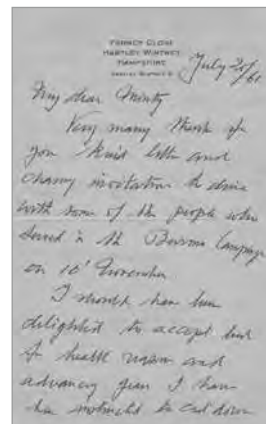 HARTLEY WINTNEY
HAMPSHIRE
July 20/61
My dear Minty
Very many thanks for
your kind letter and
charming invitation to dine
with some of the people who
served in the Burma Campaign
on 10' November
I should have been
delighted to accept but
for health reason and
advancing years I have
been instructed to cut down